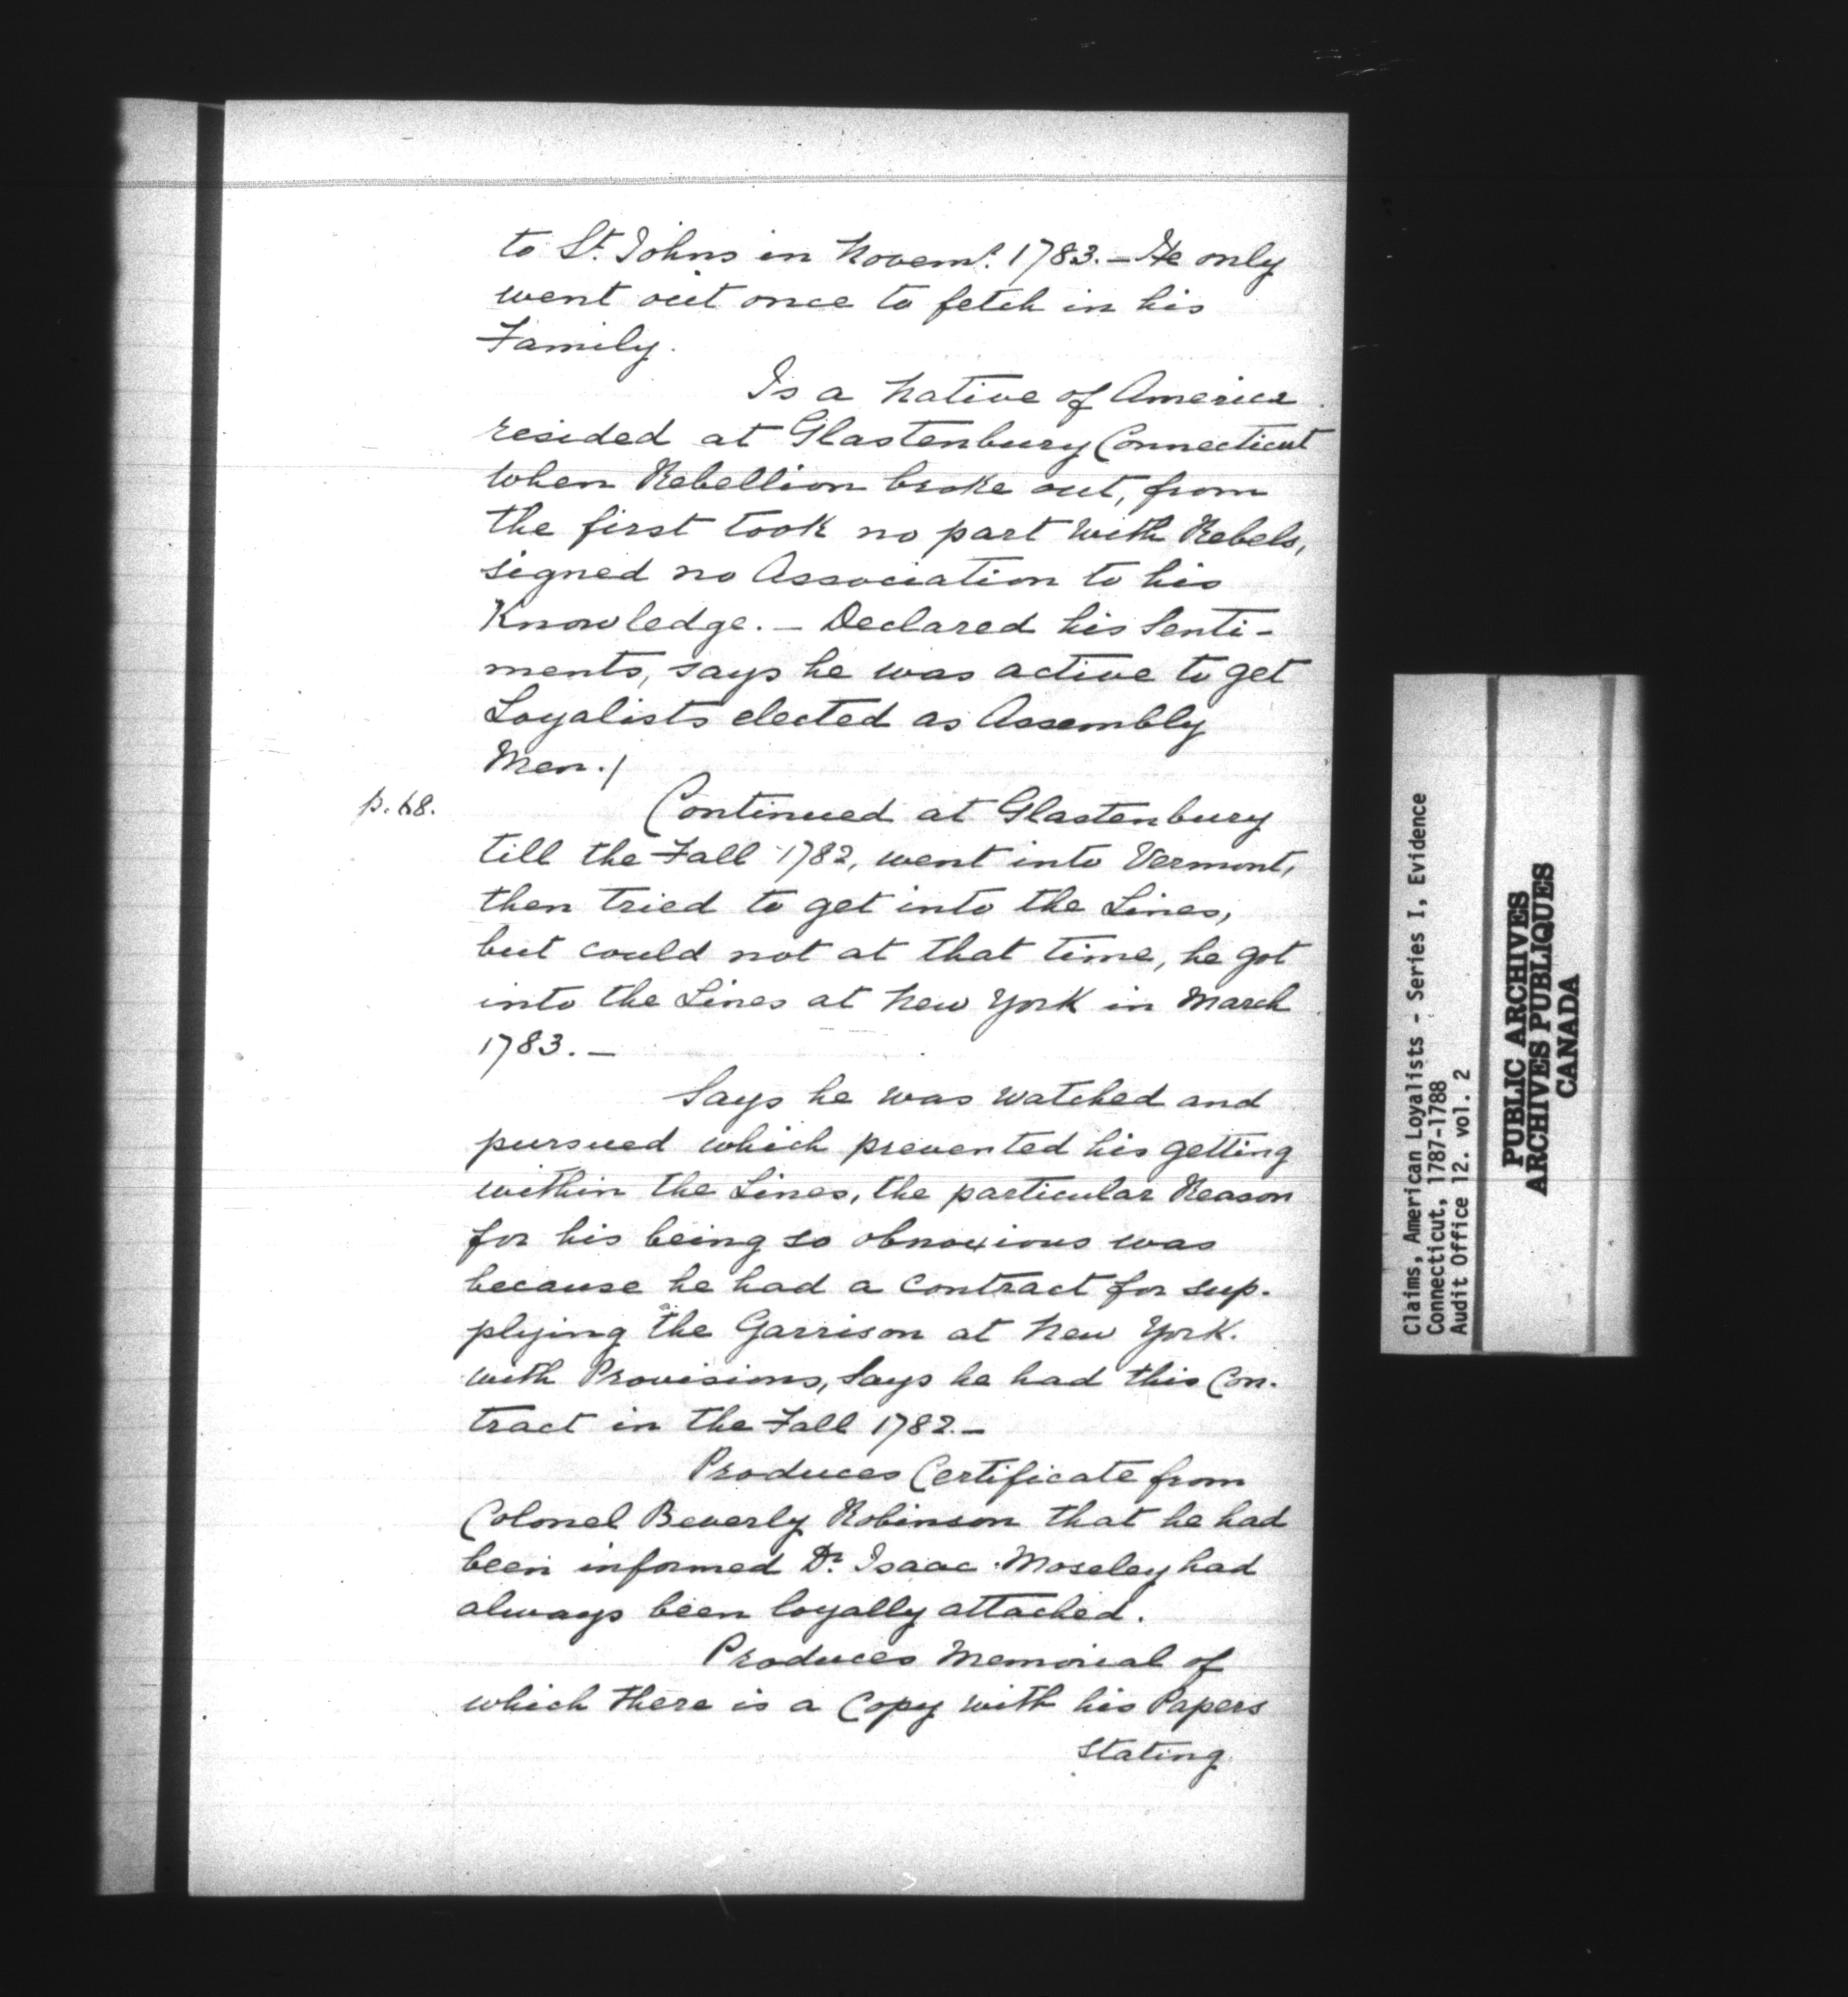 to St. Johns in Novemr. 1783. – He only
went out once to fetch in his
Family.
Is a Native of America
resided at Glastenbury Connecticut
when Rebellion broke out, from
the first took no part with Rebels,
signed no Association to his
Knowledge. – Declared his Senti-
ments, says he was active to get
Loyalists elected as Assembly
Men. /
p. 68.
Continued at Glastenbury
till the Fall 1782, went into Vermont,
then tried to get into the Lines,
but could not at that time, he got
into the Lines at New York in March
1783. –
Says he was watched and
pursued which prevented his getting
within the Lines, the particular Reason
for his being so obnoxious was
because he had a Contract for sup-
plying the Garrison at New York.
with Provisions, Says he had this Con-
tract in the Fall 1782. –
Produces Certificate from
Colonel Beverly Robinson that he had
been informed Dr. Isaac Moseley had
always been loyally attached.
Produces Memorial of
which there is a Copy with his Papers
Stating
Claims, American Loyalists - Series I, Evidence
Connecticut, 1787-1788
Audit Office 12. vol. 2
PUBLIC ARCHIVES
ARCHIVES PUBLIQUES
CANADA